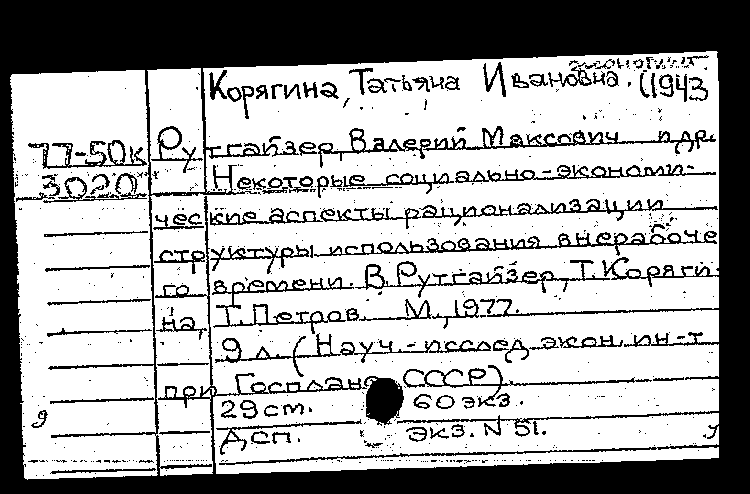 экономист.
Корягина, Татьяна Ивановна. (1943
77-50к Рутгайзер, Валерий Максович и др.
3020 Некоторые социально-экономи-
ческие аспекты рационализации
структуры использования внерабоче
го времени. В. Рутгайзер, Т. Коряги-
на, Т. Петров. М., 1977.
9 л. (Науч.-исслед. экон. ин-т
при Госплане СССР).
29 см. 60 экз.
Дсп. экз. N 51.